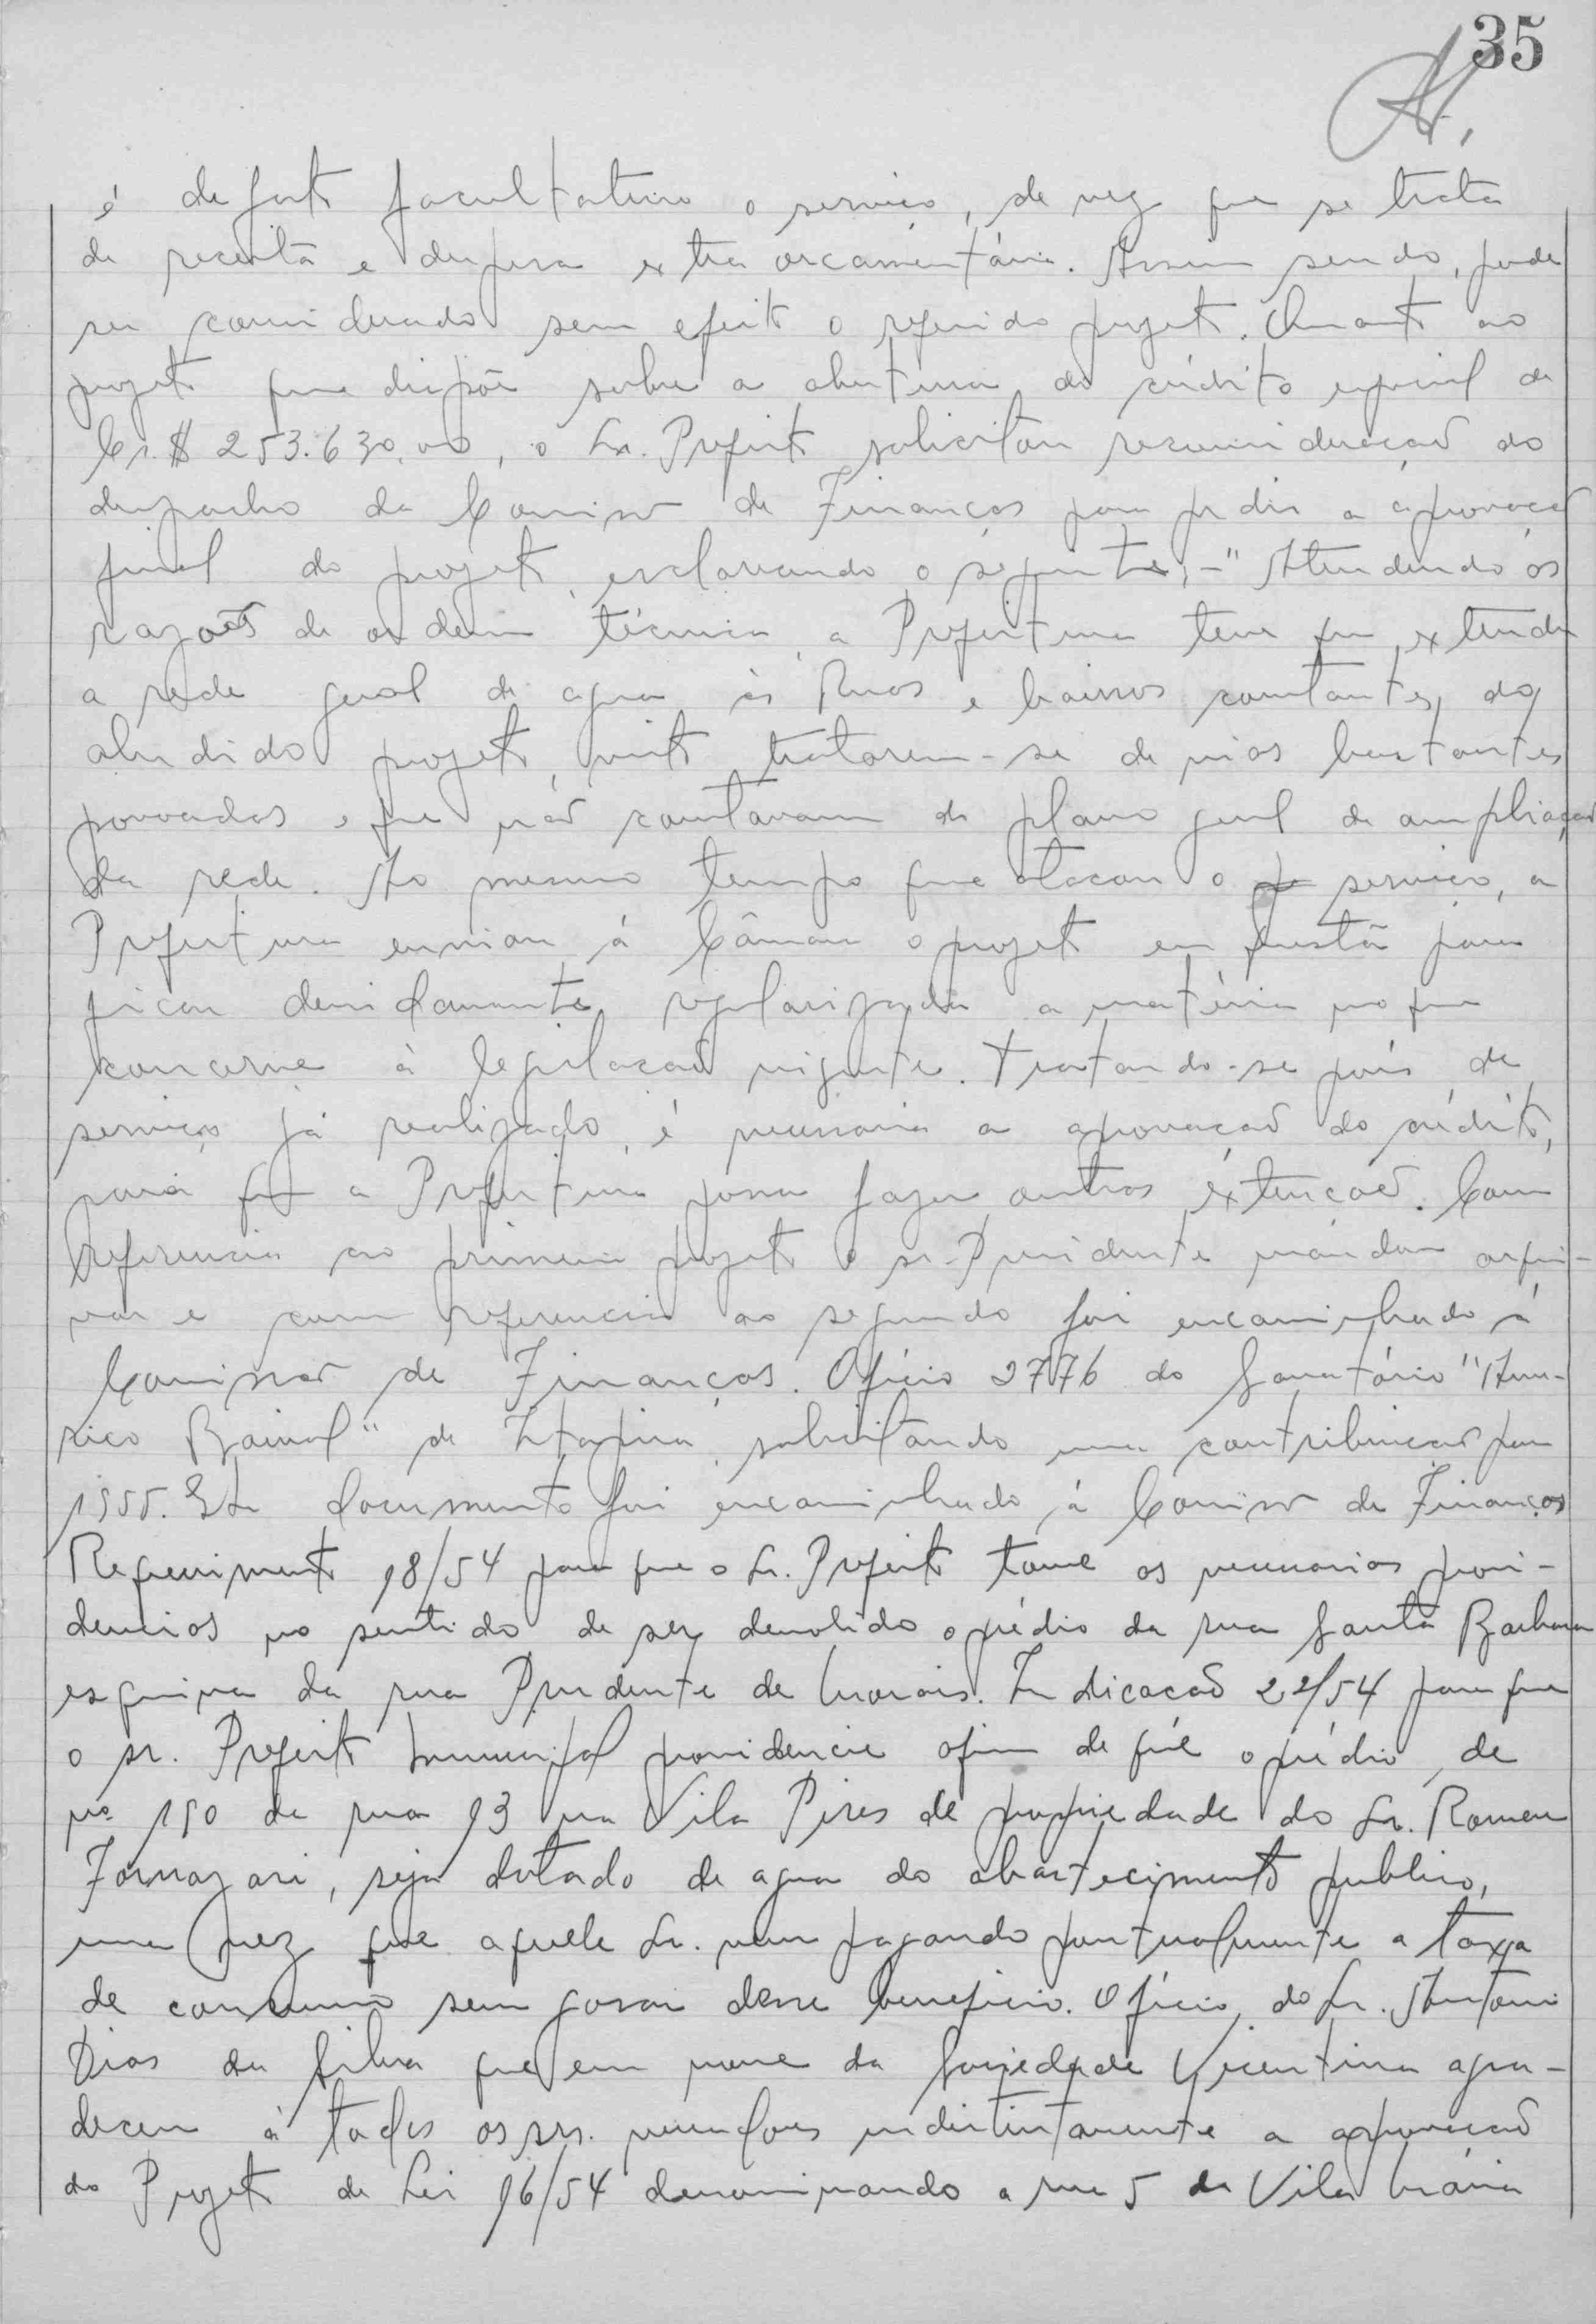 35
é de fato facultativo o serviço, de vez que se trata
de receita e despesa extra orcamentária. Assim sendo, pode
ser considerado sem efeito o referido projeto. Quanto ao
projeto que dispõe sobre a abertura do crédito especial de
Cr.$ 253.630,00, o Sr. Prefeito solicitou reconsideraçaõ do
despacho da Comissaõ de Finanças para pedir a aprovaçaõ
final do projeto, esclarecendo o seguinte: - "Atendendo ás
razoẽs de ordem técnica, a Prefeitura teve que extender
a rede geral de agua ás Ruas e bairros constantes do
aludido projeto, visto tratarem-se de vias bastantes
povoadas e que naõ constavam do plano geral de ampliaçaõ
da rede. Ao mesmo tempo que atacou o serviço, a
Prefeitura enviou á Câmara o projeto em questã para
ficar devidamente regularizada a matéria no que
concerne á legislacaõ vigente. Tratando-se pois, de
serviço já realizado, é necessaria a aprovaçaõ do crédito,
para que a Prefeitura possa fazer outras extençoẽs. Com
referencia ao primeiro projeto o sr. Presidente mandou arqui-
var e com referencia ao segundo foi encaminhado á
Comissaõ de Finanças. Ofício 2776 do Sanatório "Amé-
rico Bairral" de Itapira, solicitando uma contribuicaõ para
1955. Este documento foi encaminhado á Comissaõ de Finanças
Requerimento 18/54 para que o Sr. Prefeito tome as necessarias provi-
dencias no sentido de ser demolido o prédio da rua Santa Barbara
esquina da rua Prudente de Morais. Indicacaõ 22/54 para que
o sr. Prefeito Municipal providencie afim de que o prédio de
nº 190 da rua 13 na Vila Pires de propriedade do Sr. Romeu
Fornazari, seja dotado de agua do abastecimento publico,
uma vez que aquele Sr. vem pagando pontualmente a taxa
de consumo sem gosar desse beneficio. Ofício do Sr. Antonio
Dias da Silva que em nome da Sociedade Vicentina agra-
deceu á todos os srs. vereadores indistintamente a aprovacaõ
do Projeto de Lei 16/54 denominando a rua 5 da Vila Maria